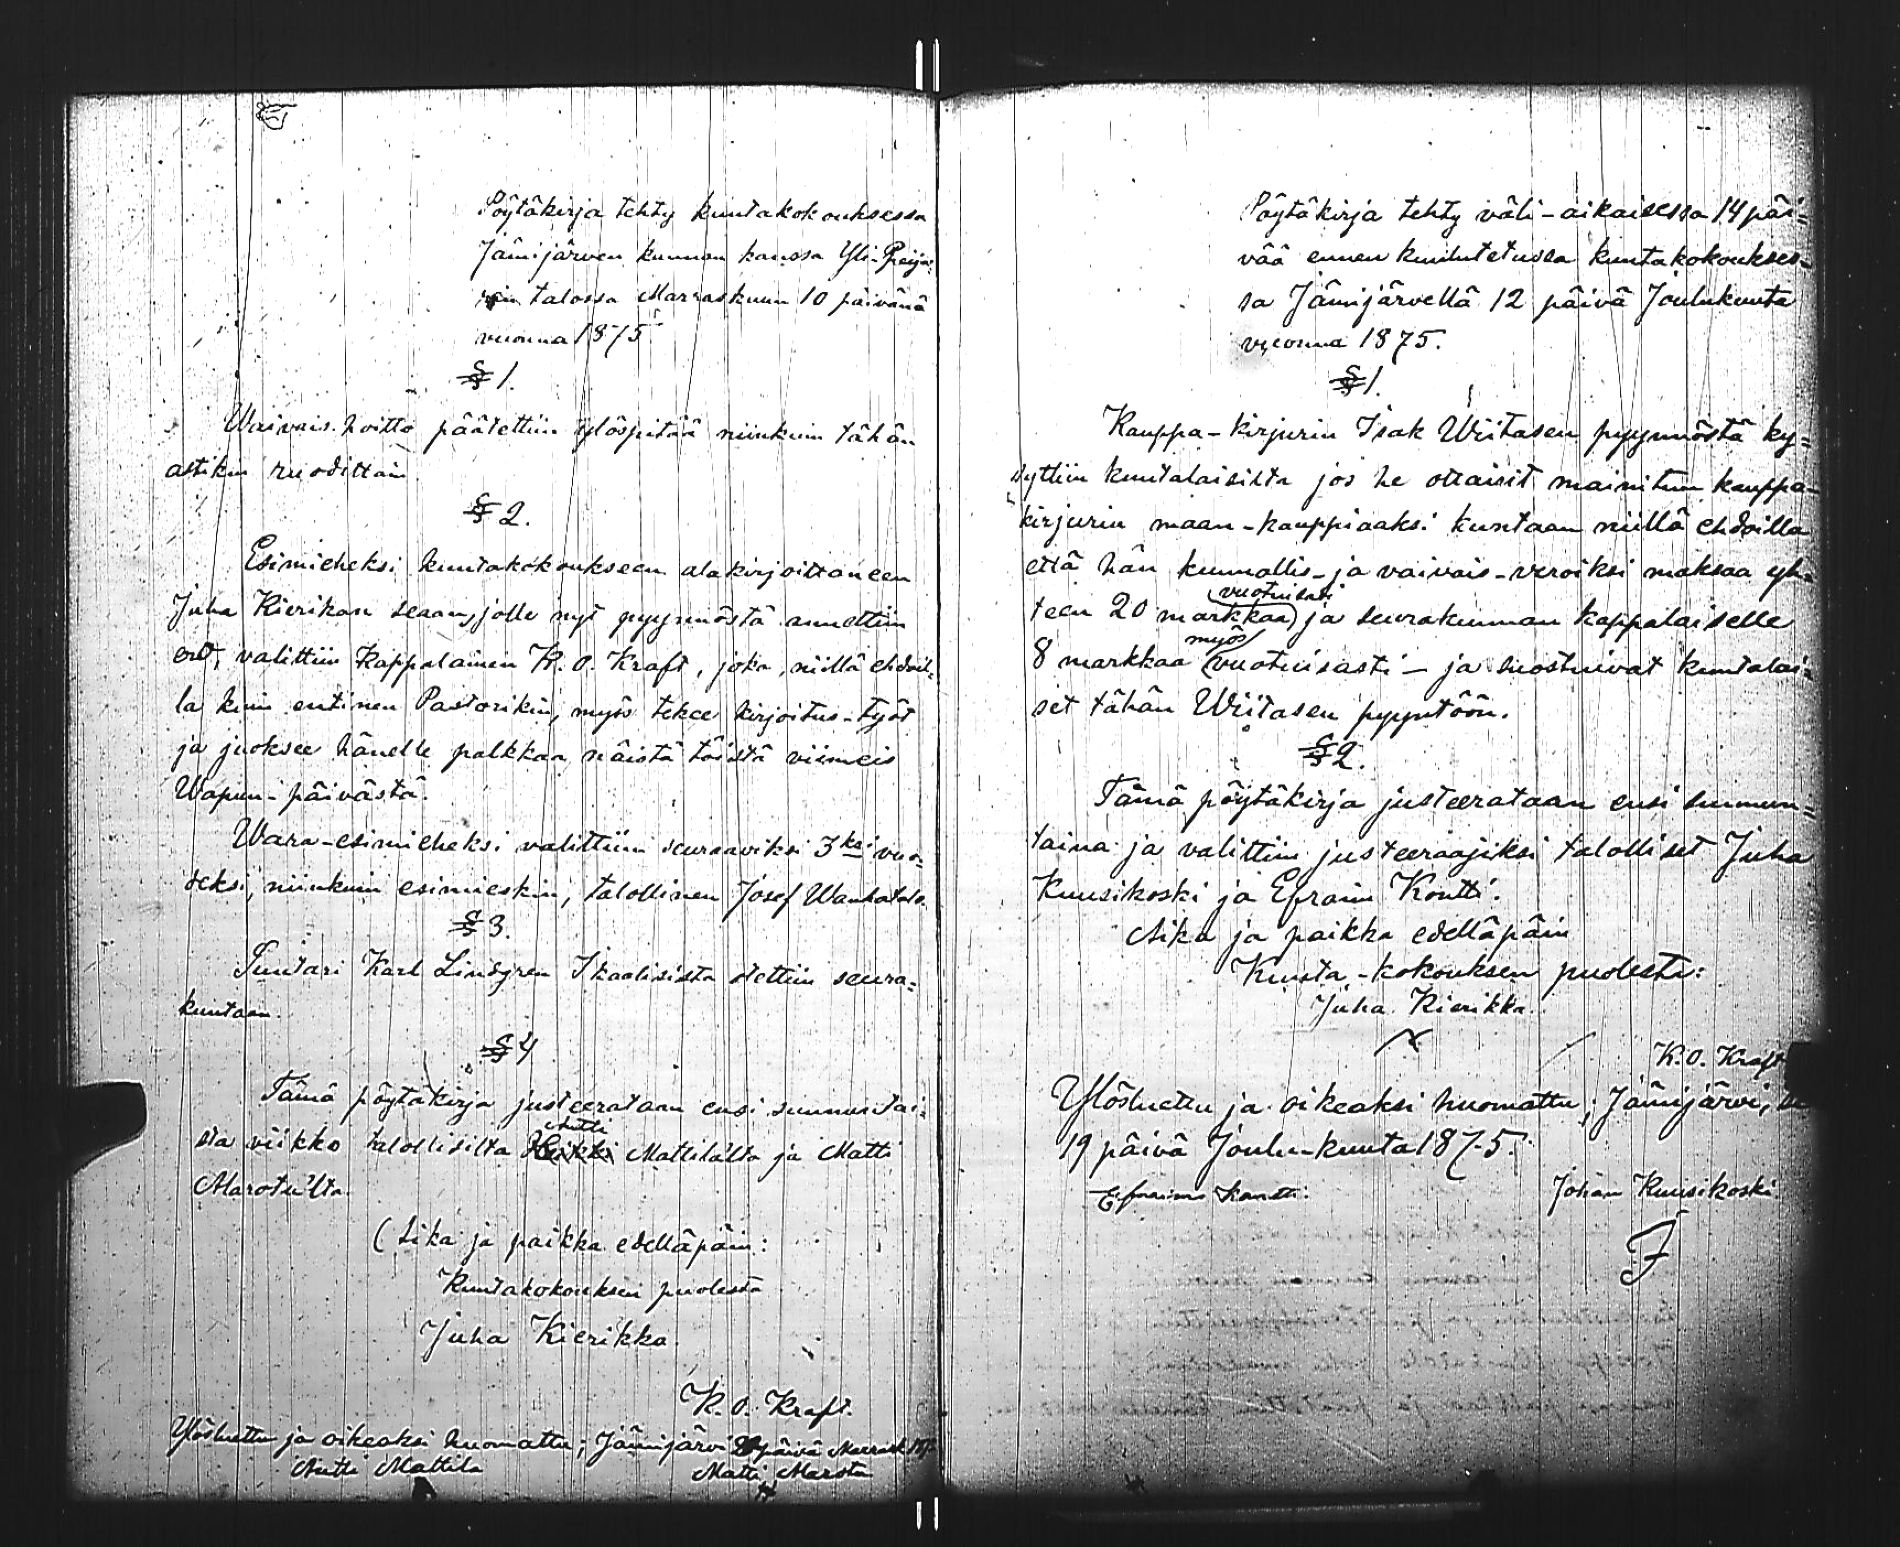 Pöytäkirja tehty kuntakokouksessa
Jämijärven kunnan kanssa Yli-Peija-
rin talossa Marraskuun 10 päivänä
vuonna 1875.
§ 1.
Waivais-hoitto päätettiin ylöspitää niinkuin tähän
astikin ruodittain.
§ 2.
Esimieheksi kuntakokoukseen alakirjoittaneen
Juha Kierikan seaan, jolle nyt pyynnöstä annettiin
ero, valittiin Kappalainen K. O. Kraft, joka, niillä ehdoil-
la kuin entinen Pastorikin, myös tekee kirjoitus-työt
ja juoksee hänelle palkkaa näistä töistä viimeis
Wapun-päivästä.
Wara-esimieheksi valittiin seuraaviksi 3ksi vuo-
deksi, niinkuin esimieskin, talollinen Josef Wanhatalo.
§ 3.
Suutari Karl Lindgren Ikaalisista otettiin seura-
kuntaan.
§ 4
Tämä pöytäkirja justeerataan ensi sunnuntai-
Antti
sta viikko talollisilta Heikki Mattilalta ja Matti
Marotulta.
Aika ja paikka edelläpäin:
Kuntakokouksen puolesta
Juha Kierikka.
K. O. Kraft.
Ylösluettu ja oikeaksi huomattu; Jämijärvi päivä Marrask
Antti Mattila Matti Marotu
Pöytäkirja tehty väli-aikaisessa 14 päi-
vää ennen kuulutetussa kuntakokoukses-
sa Jämijärvellä 12 päivä Joulukuuta
vuonna 1875.
§ 1.
Kauppa-kirjurin Isak Wiitasen pyynnöstä ky-
syttiin kuntalaisilta jos he ottaisit mainitun kauppa-
kirjurin maan-kauppiaaksi kuntaan niillä ehdoilla
että hän kunnallis- ja vaivais-veroiksi maksaa yh-
vuotuisesti
teen 20 markkaa ja seurakunnan kappalaiselle
myös
8 markkaa vuotuisasti – ja suostuivat kuntalai-
set tähän Wiitasen pyyntöön.
§ 2.
Tämä pöytäkirja justeerataan ensi sunnun-
taina ja valittiin justeeraajiksi talolliset Juha
Kuusikoski ja Efraim Kontti.
Aika ja paikka edelläpäin
Kunta-kokouksen puolesta:
Juha Kierikka.
K. O. Kraft
Ylösluettu ja oikeaksi huomattu; Jämijärvi,
19 päivä Joulu-kuuta 1875.
Efraim Kontti. Johan Kuusikoski